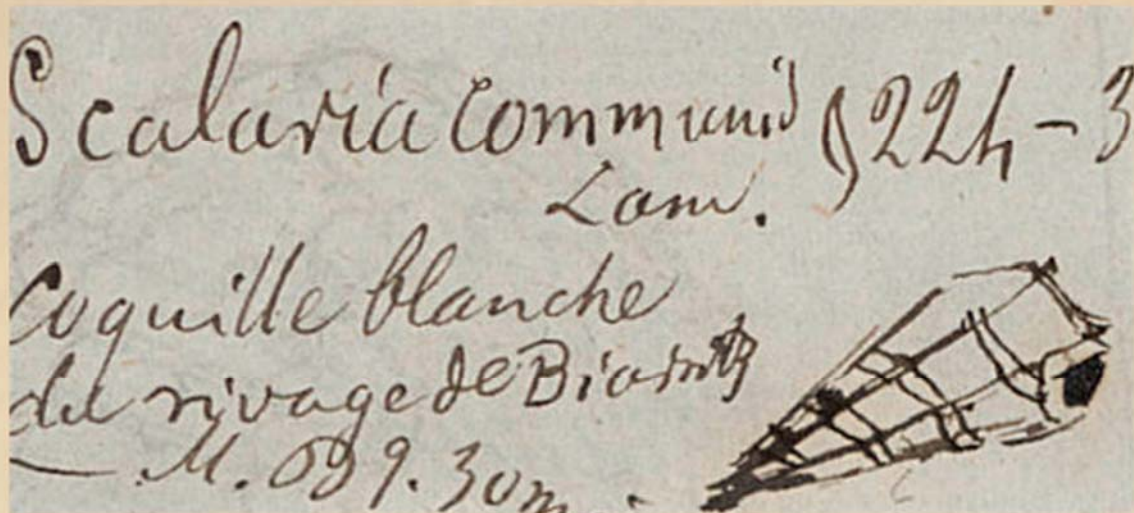 Scalaria communis § 224 - 3
Lam.
Coquille blanche
du rivage de Biarritz
M. 9. 30m.